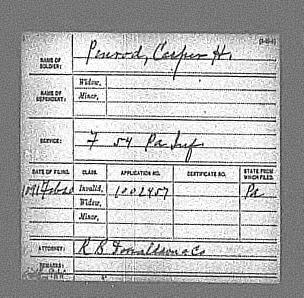 NAME OF SOLDIER: Penrod, Casper H.
NAME OF DEPENDENT: Widow,
Minor,
SERVICE: F 54 Pa Inf.
DATE OF FILING. CLASS. APPLICATION NO. CERTIFICATE NO. STATE FROM WHICH FILED.
1891 Feb 20 Invalid, 1002457 Pa
Widow,
Minor,
ATTORNEY: R B Donaldson & Co
REMARKS: